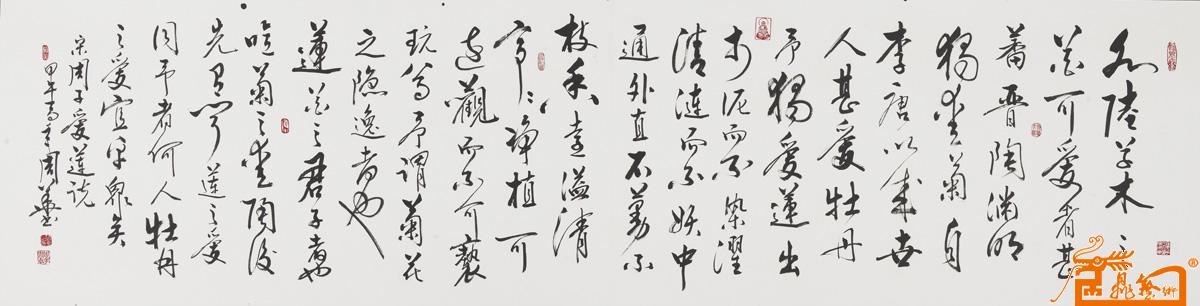 水陸草木之
花可愛者甚
蕃晋陶渊明
獨愛菊自
李唐以來世
人甚愛牡丹
予獨爱蓮出
於泥而不染濯
清漣而不妖中
通外直不蔓不
枝香遠溢清
亭亭净植可
远觀而不可褻
玩焉予謂菊花
之隐逸者也
蓮花之君子者也
噫菊之愛陶後
先有闻蓮之爱
同予者何人牡丹
之爱宜乎衆矣
宋周子爱蓮説
甲午